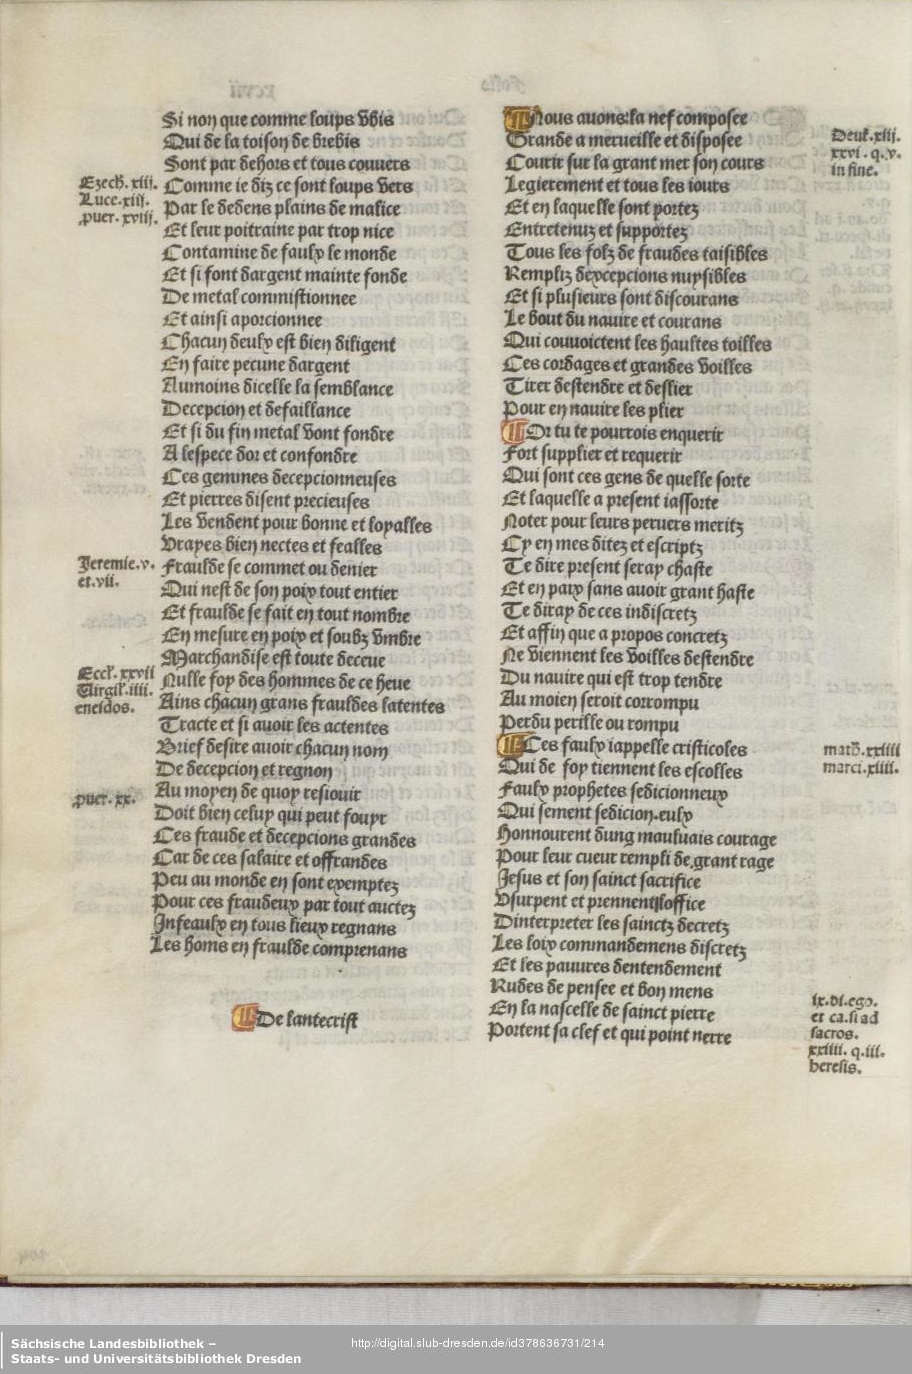 Si non que comme loups vbis
Qui de la toison de brebis
Sont par dehors et tous couuers
Ezech. xiij.
Comme ie diz ce sont loups vers
Luce. xiij.
Par le dedens plains de malice
puer. xviij.
Et leur poitraine par trop nice
Contamine de faulx le monde
Et si font dargent mainte fonde
De metal commistionnee
Et ainsi aporcionnee
Chacun deulx est bien diligent
En faire pecune dargent
Aumoins dicelle la semblance
Decepcion et defaillance
Et si du fin metal vont fondre
A lespece dor et confondre
Ces gemmes decepcionneuses
Et pierres disent precieuses
Les vendent pour bonne et loyalles
Vrayes bien nectes et fealles
Jeremie. v.
et. vii.
Fraulde se commet ou denier
Qui nest de son poix tout entier
Et fraulde se fait en tout nombre
En mesure en poix et soubz vmbre
Marchandise est toute deceue
Eccl. xxvii
Virgil. iiii.
eneidos.
Nulle foy des hommes de ce heue
Ains chacun grans frauldes latentes
Tracte et si auoir les actentes
Brief desire auoir chacun nom
De decepcion et regnon
puer. xx.
Au moyen de quoy resiouir
Doit bien celuy qui peut fouyr
Ces fraude et decepcions grandes
Car de ces salaire et offrandes
Peu au monde en sont exemptez
Pour ces fraudeux par tout auctez
Infeaulx en tous lieux regnans
Les homs en fraulde comprenans
De lantecrist
Nous auons la nef composee
Grande a merueille et disposee
Deut. xiij.
xxvi. q. v.
in fine.
Courir sur la grant mer son cours
Legierement et tous les iours
Et en laquelle sont portez
Entretenuz et supportez
Tous les folz de fraudes taisibles
Rempliz dexcepcions nuysibles
Et si plusieurs sont discourans
Le bout du nauire et courans
Qui couuoictent les haultes toilles
Ces cordages et grandes voilles
Tirer destendre et deslier
Pour en nauire les plier
Or tu te pourrois enquerir
Fort supplier et requerir
Qui sont ces gens de quelle sorte
Et laquelle a present iassorte
Noter pour leurs peruers meritz
Cy en mes ditez et escriptz
Te dire present seray chaste
Et en paix sans auoir grant haste
Te diray de ces indiscretz
Et affin que a propos concretz
Ne viennent les voilles destendre
Du nauire qui est trop tendre
Au moien seroit corrompu
Perdu perille ou rompu
Ces faulx iappelle cristicoles
math. xxiiii
marci. xiiii.
Qui de foy tiennent les escolles
Faulx prophetes sedicionneux
Qui sement sedicion. eulx
Honnourent dung mauluais courage
Pour leur cueur rempli de grant rage
Jesus et son sainct sacrifice
Vsurpent et prennent loffice
Dinterpreter les sainctz decretz
Les loix commandemens discretz
Et les pauures dentendement
Rudes de pensee et bon mens
En la nascelle de sainct pierre
Portent sa clef et qui point nerre
ix. di. ego.
et ca. si ad
sacros.
xxiiii. q. iii.
heresis.
Sächsische Landesbibliothek –
Staats- und Universitätsbibliothek Dresden
http://digital.slub-dresden.de/id378636731/214